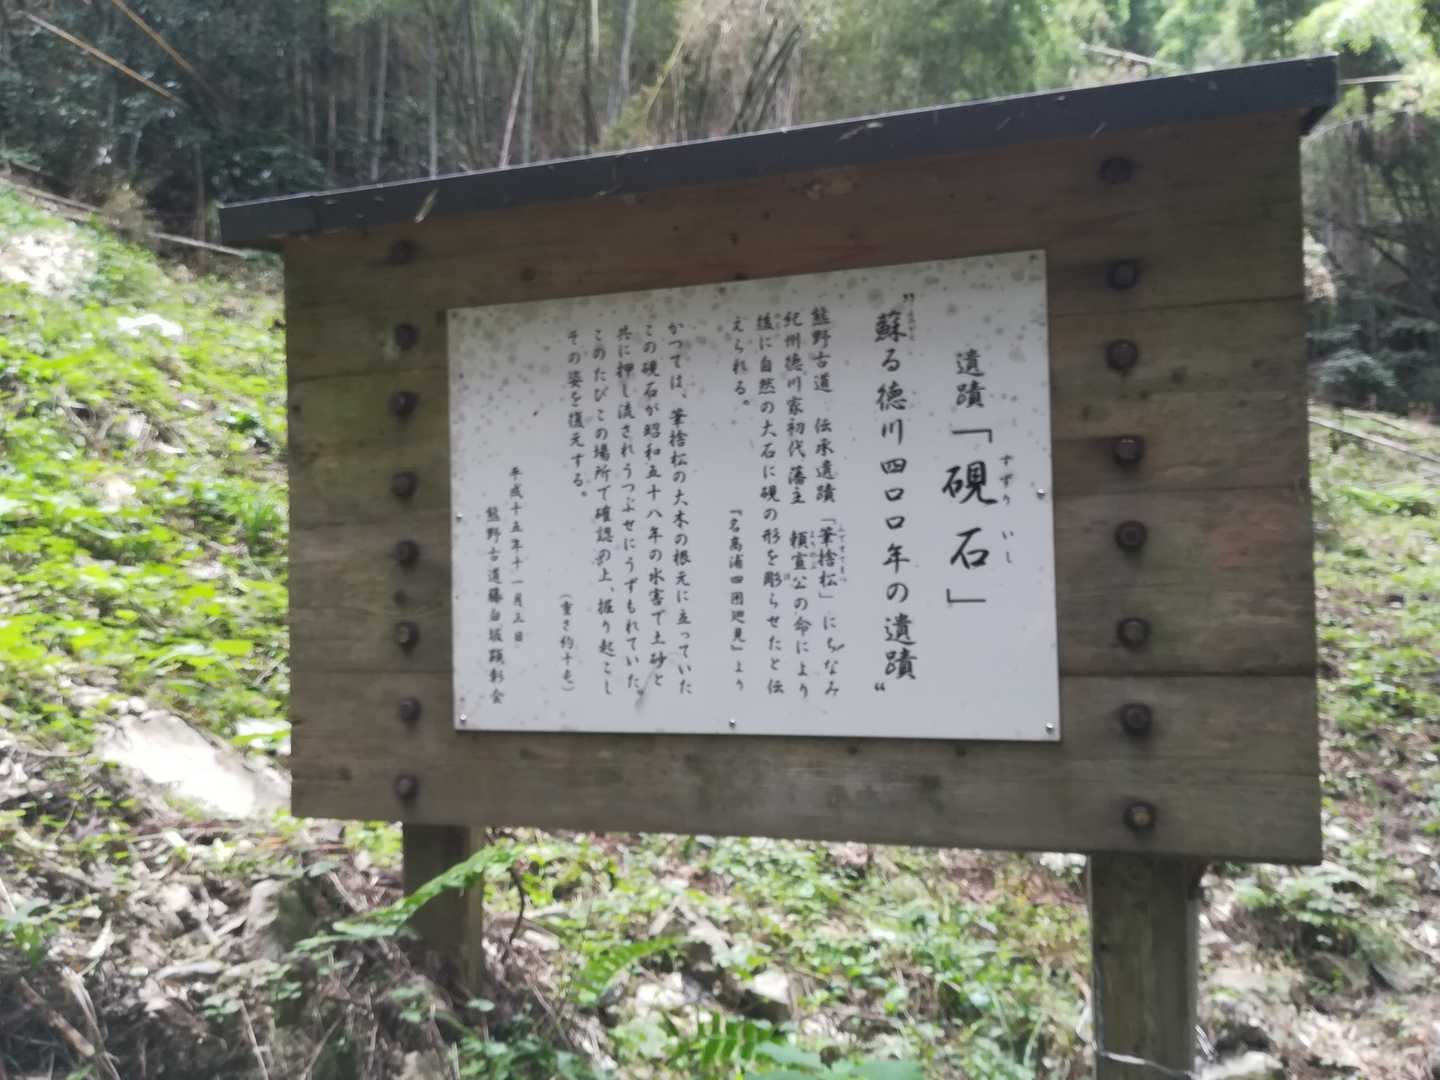 遺蹟「硯石」
すずり いし
"蘇る徳川四〇〇年の遺蹟"
よみがえ
熊野古道 伝承遺蹟「筆捨松」にちなみ
ふですてまつ
紀州徳川家初代藩主 頼宣公の命により
よりのぶ
後に自然の大石に硯の形を彫らせたと伝
のち ほ
えられる。
『名高浦四囲廻見』より
かつては、筆捨松の大木の根元に立っていた
この硯石が昭和五十八年の水害で土砂と
共に押し流されうつぶせにうずもれていた。
このたびこの場所で確認の上、掘り起こし
その姿を復元する。
(重さ約十屯)
平成十五年十一月三日
熊野古道藤白坂顕彰会